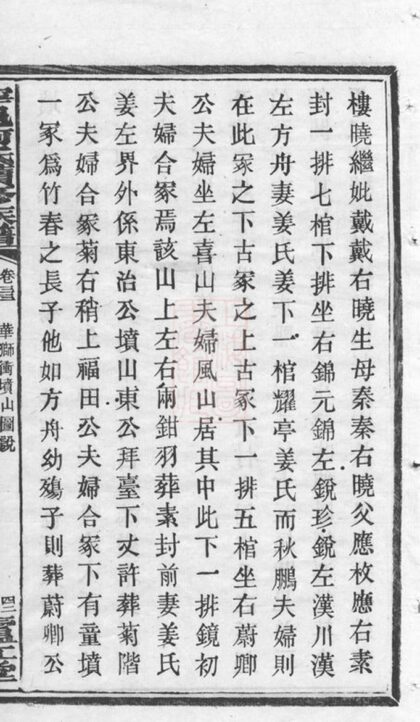 樓曉繼妣戴戴右曉生母秦秦右曉父應枚應右素
封一排七棺下排坐右錦元錦左銳珍銳左漢川漢
左方舟妻姜氏姜下一棺耀亭姜氏而秋鵬夫婦則
在此冢之下古冢之上古冢下一排五棺坐右蔚卿
公夫婦坐左喜山夫婦風山居其中此下一排鏡初
夫婦合冢焉該山上左右兩鉗羽葬素封前妻姜氏
姜左界外係東治公墳山東公拜臺下丈許葬菊階
公夫婦合冢菊右稍上福田公夫婦合冢下有童墳
一冢爲竹春之長子他如方舟幼殤子則葬蔚卿公
卷三 華獅衝墳山圖說